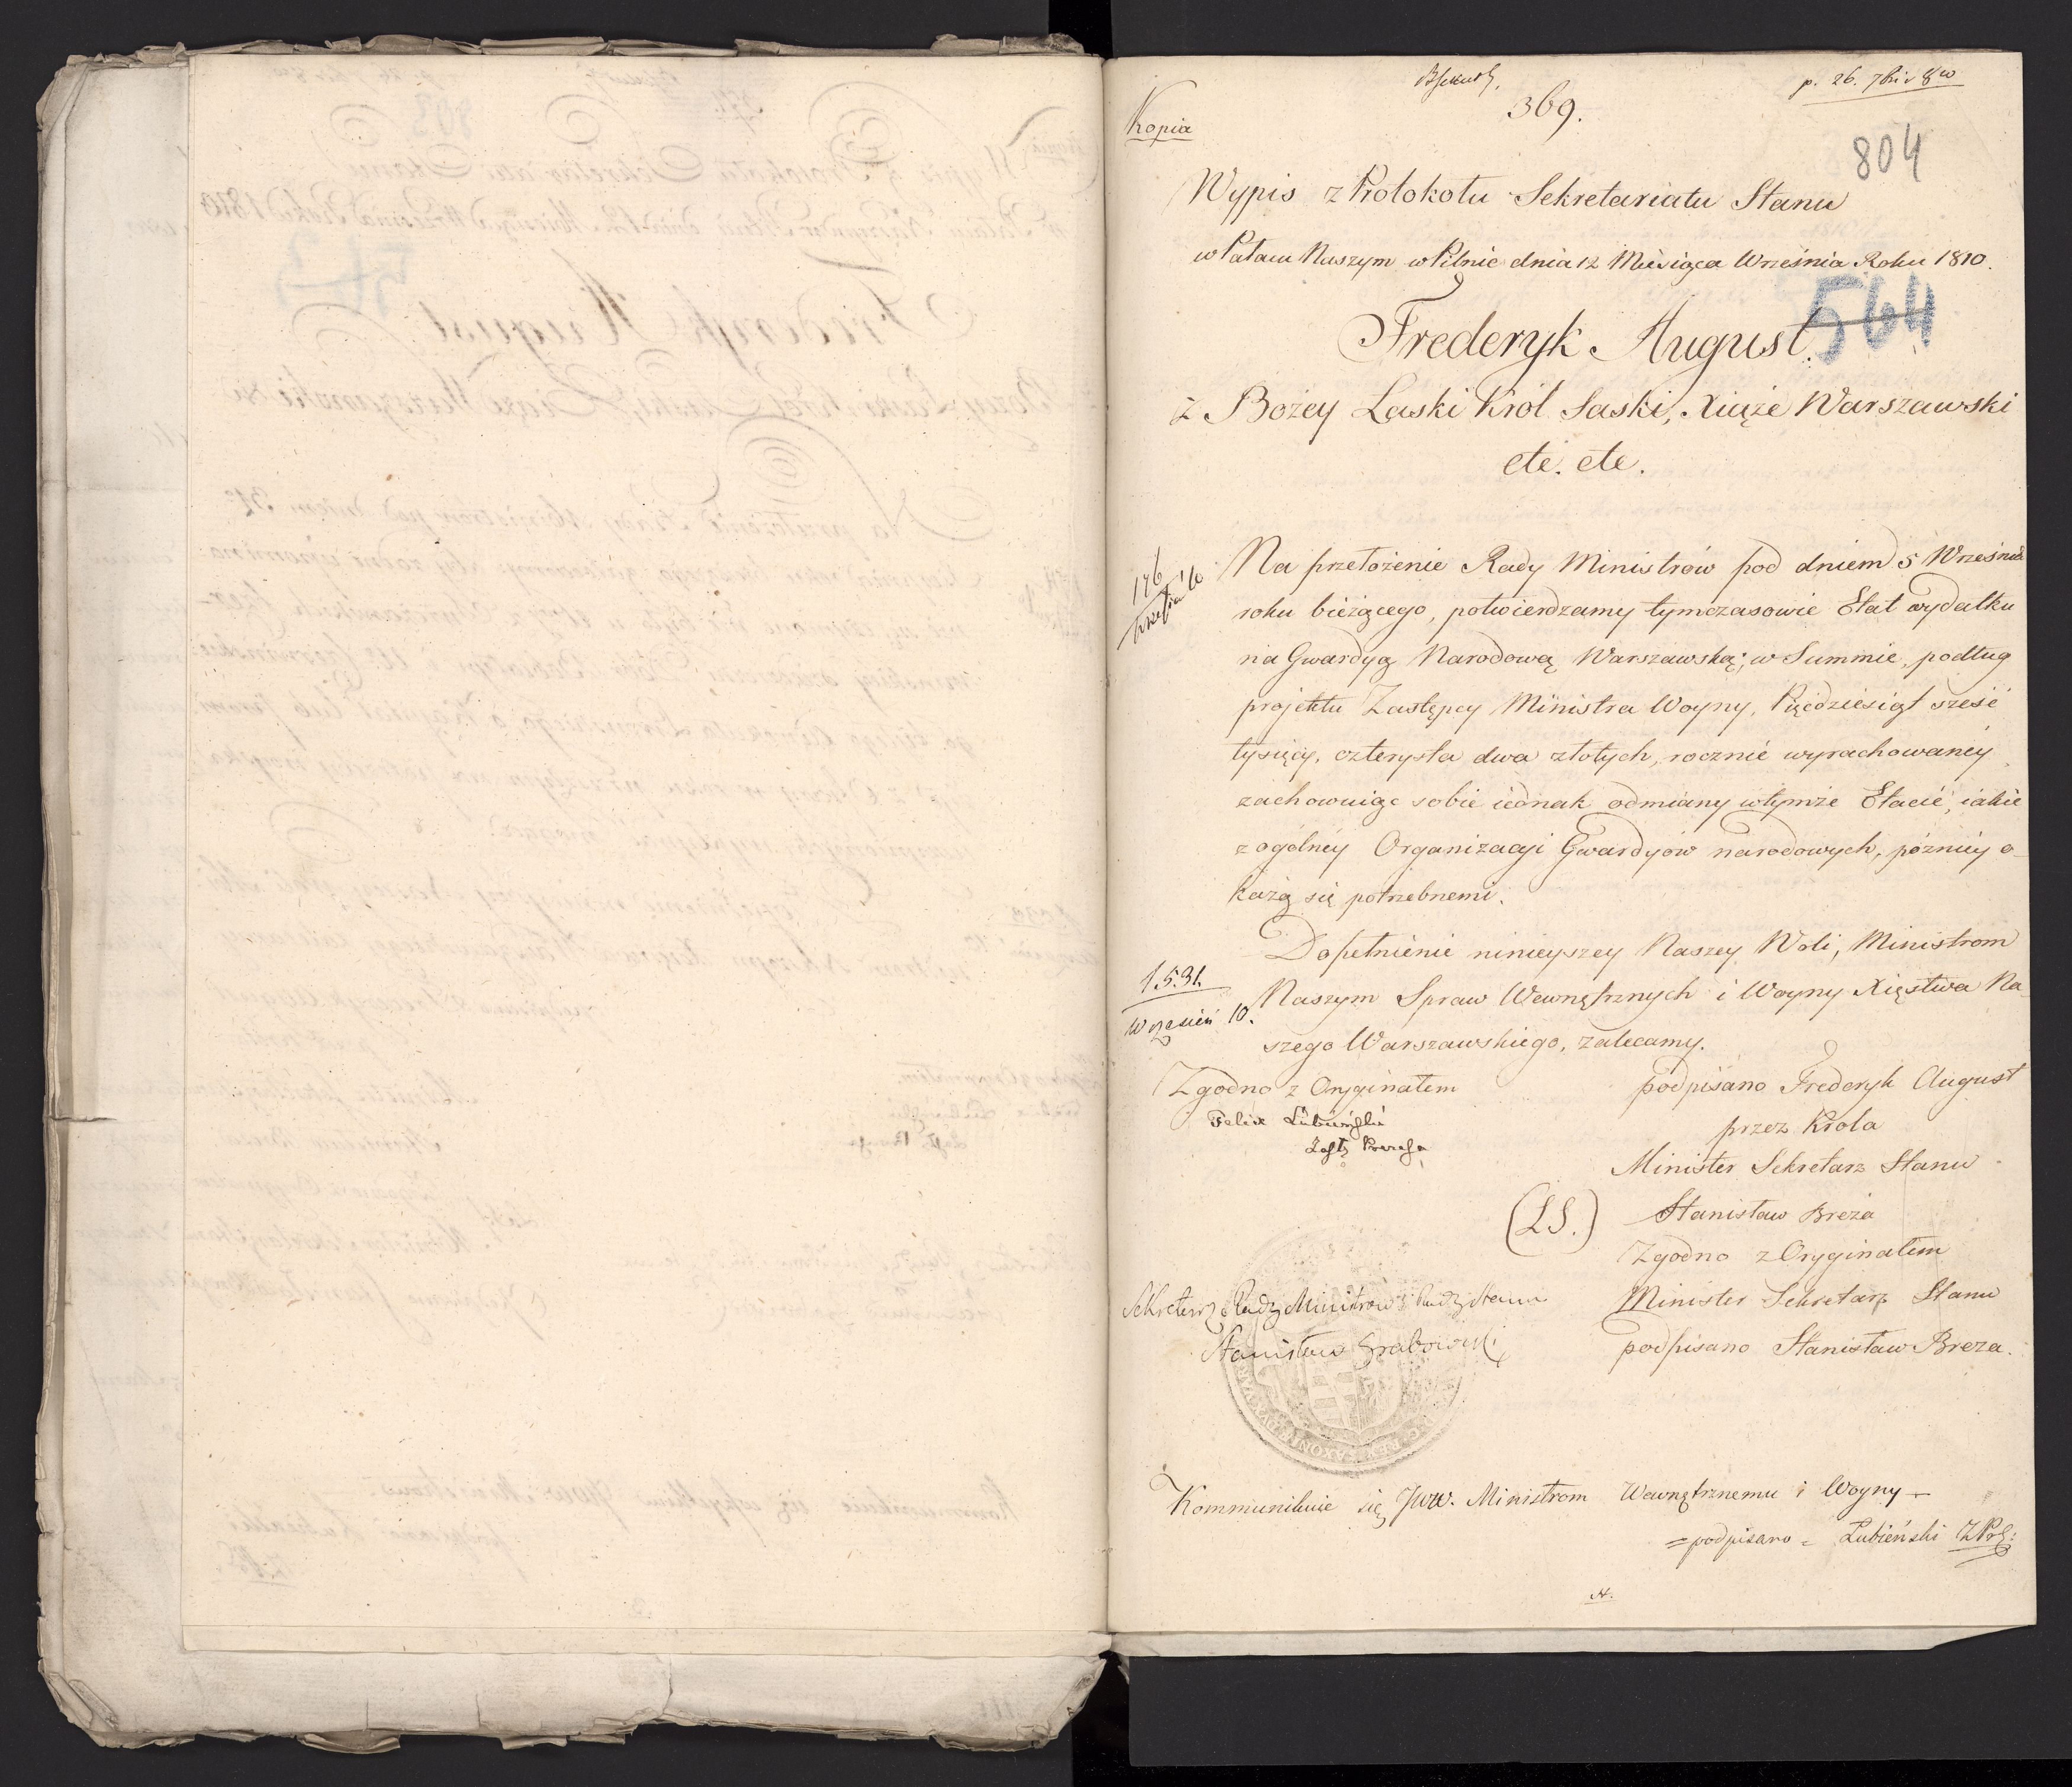 p. 26. 7bris 810
369.
Kopia
804
Wypis z Protokołu Sekretariatu Stanu
w Pałacu Naszym w Pilnie dnia 12 Miesiąca Września Roku 1810.
564
Frederyk August.
z Bożey Łaski Król Saski, Xiąże Warszawski
etc. etc.
Na przełożenie Rady Ministrów pod dniem 5 Września
roku bieżącego, potwierdzamy tymczasowie Etat wydatku
na Gwardyą Narodową Warszawską; w Summie, podług
projektu Zastępcy Ministra Woyny, Pięćdziesiąt sześć
tysięcy, czterysta dwa złotych, rocznie wyrachowaney,
zachowuiąc sobie iednak odmiany w tymże Etacie, iakie
z ogólney Organizacyi Gwardyów narodowych, pózniey o-
każą się potrzebnemi.
Dopełnienie ninieyszey Naszey Woli, Ministrom
1531.
Wrzesień 10.
Naszym Spraw Wewnętrznych i Woyny Xięstwa Na-
szego Warszawskiego, zalecamy.
Zgodno z Oryginałem
podpisano Frederyk August
Felix Łubieński
przez Króla
Zastę Prezesa
Minister Sekretarz Stanu
(LS.)
Stanisław Breza
Zgodno z Oryginałem
Sekretarz Rady Ministrów i Rady Stanu
Minister Sekretarz Stanu
Stanisław Grabowski
podpisano Stanisław Breza.
Kommunikuie się JWW. Ministrom Wewnętrznemu i Woyny —
= podpisano = Łubieński ZPrs: